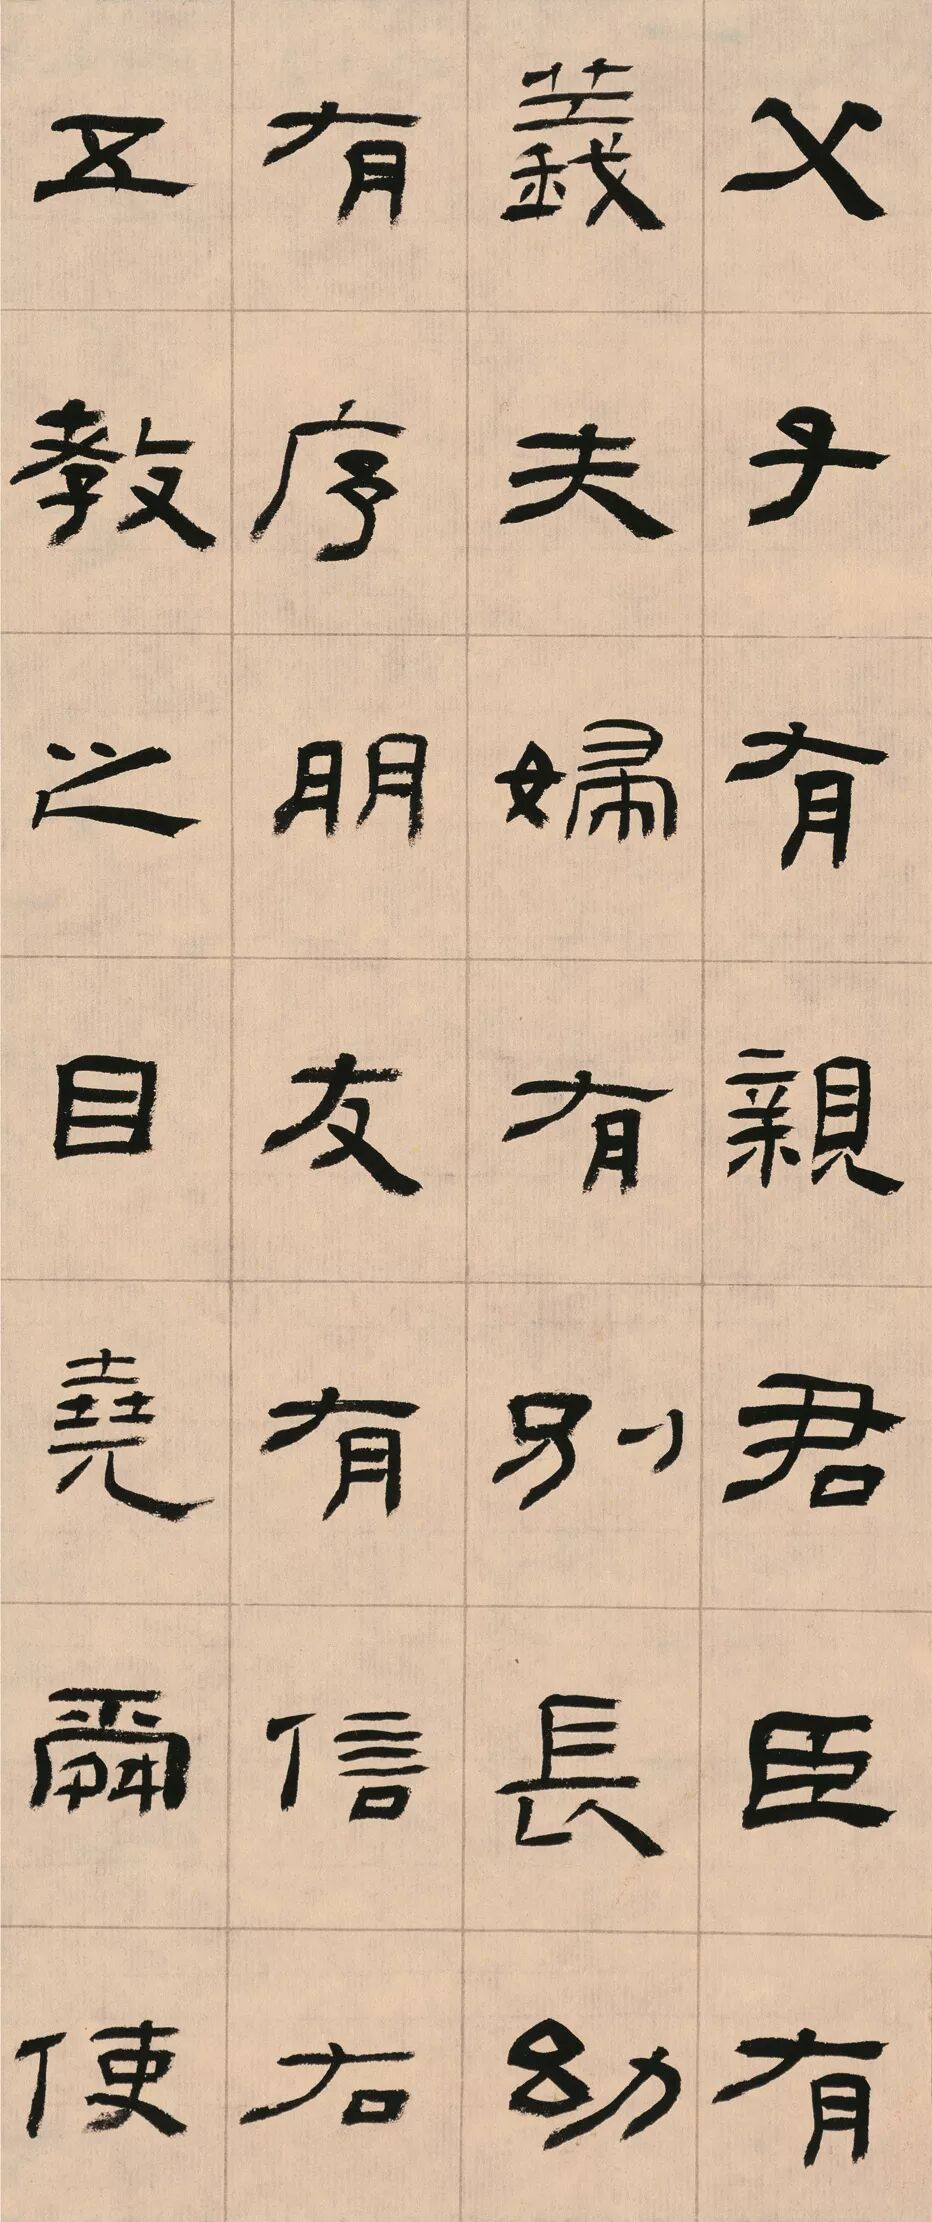 父子有親君臣有
義夫婦有別長幼
有序朋友有信右
五教之目堯爾使